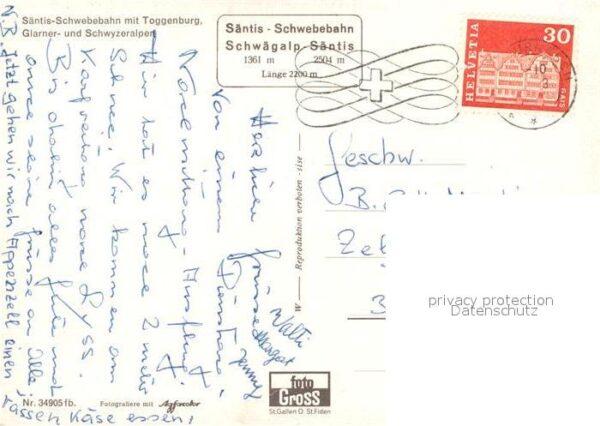 Säntis-Schwebebahn mit Toggenburg,
Glarner- und Schwyzeralpen
Säntis - Schwebebahn
Schwägalp - Säntis
1361 m 2504 m
Länge 2200 m
HELVETIA
30
GAIS
Von einem
Nachmittag - Ausflug
Hier hat es noch 2 meter
Schnee. Wir kommen am
nach Lyss.
Bis dahin alles gute und
Grüsse an alle
Herzliche Grüsse
Walti
Margrit
Jenny
N.B. Jetzt gehen wir nach Appenzell einen
rassen Käse essen!
Geschw.
B.
W — Reproduktion verboten - sise —
privacy protection
Datenschutz
Nr. 34905 fb.
Fotografiere mit Agfacolor
foto
GROSS
St.Gallen O St.Fiden